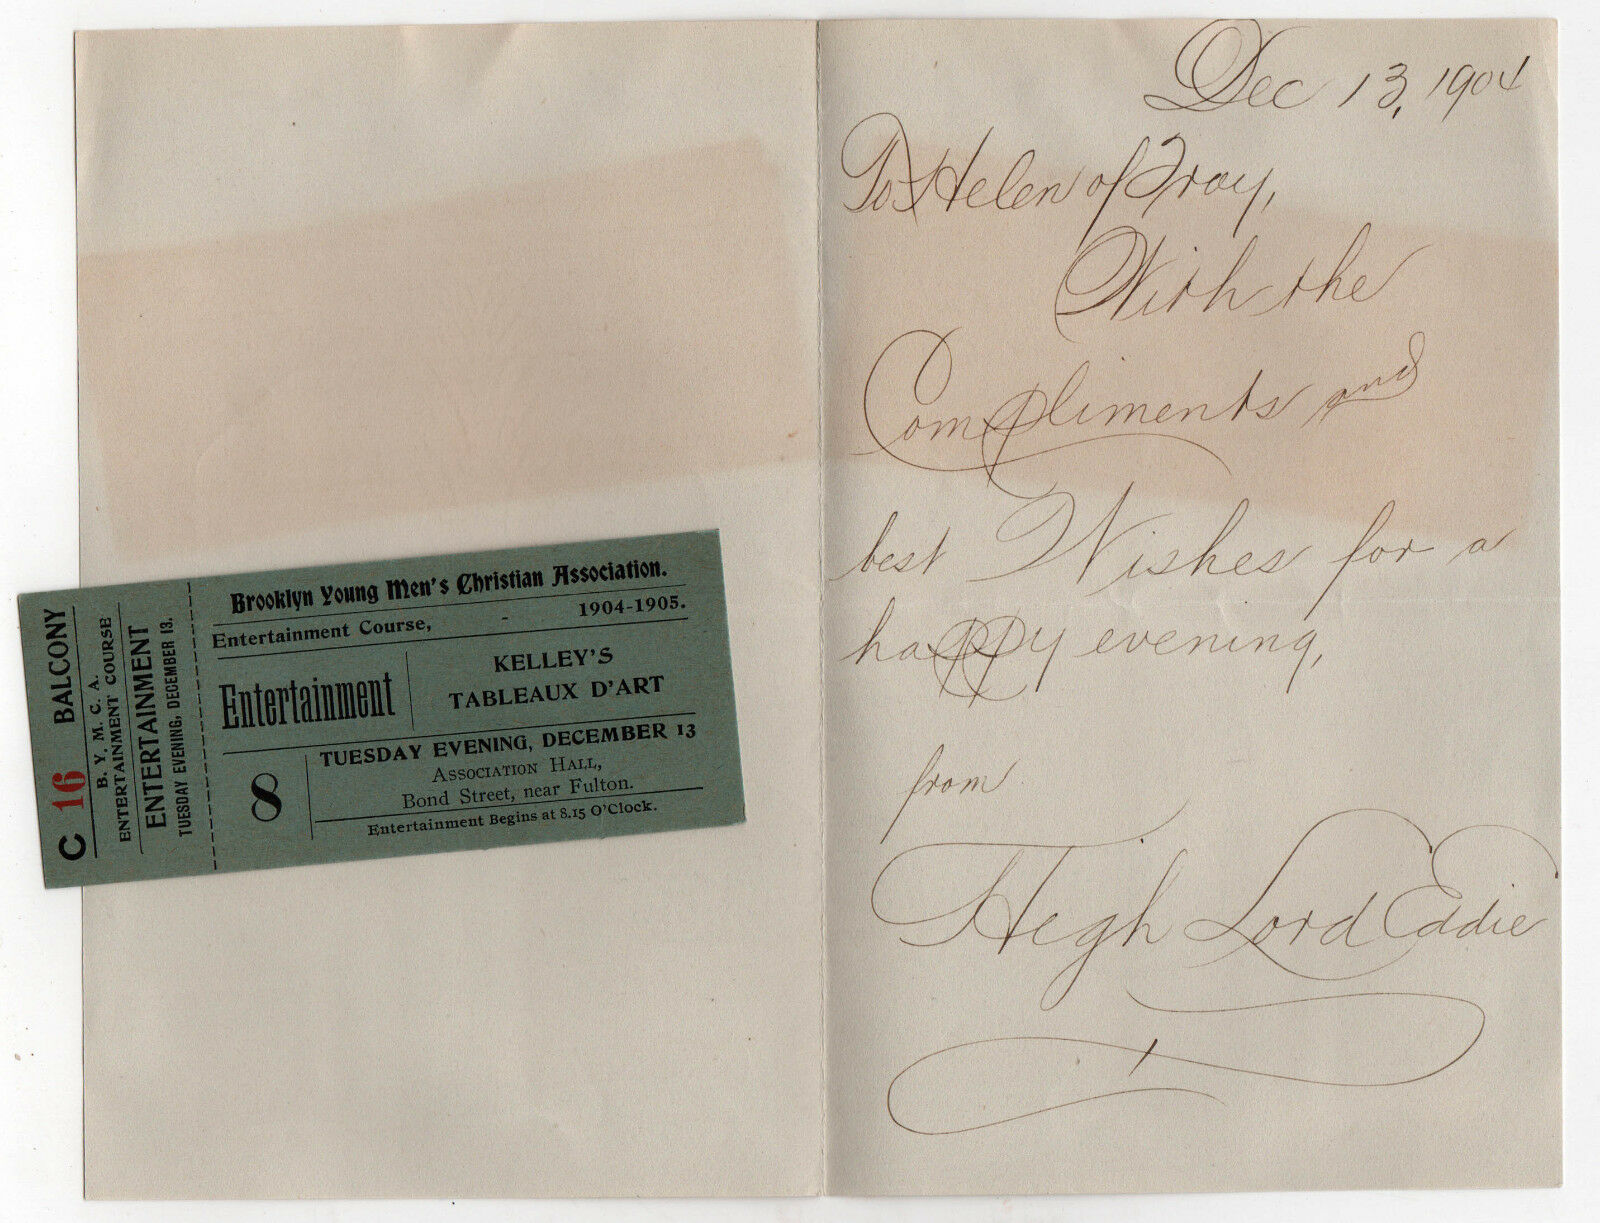 C 16 BALCONY
B. Y. M. C. A.
ENTERTAINMENT COURSE
ENTERTAINMENT
TUESDAY EVENING, DECEMBER 13.
Brooklyn Young Men's Christian Association.
Entertainment Course, - 1904-1905.
Entertainment
KELLEY'S
TABLEAUX D'ART
8
TUESDAY EVENING, DECEMBER 13
ASSOCIATION HALL,
Bond Street, near Fulton.
Entertainment Begins at 8.15 O'Clock.
Dec 13, 1904
To Helen of Troy,
With the
Compliments and
best Wishes for a
happy evening,
from
High Lord Eddie